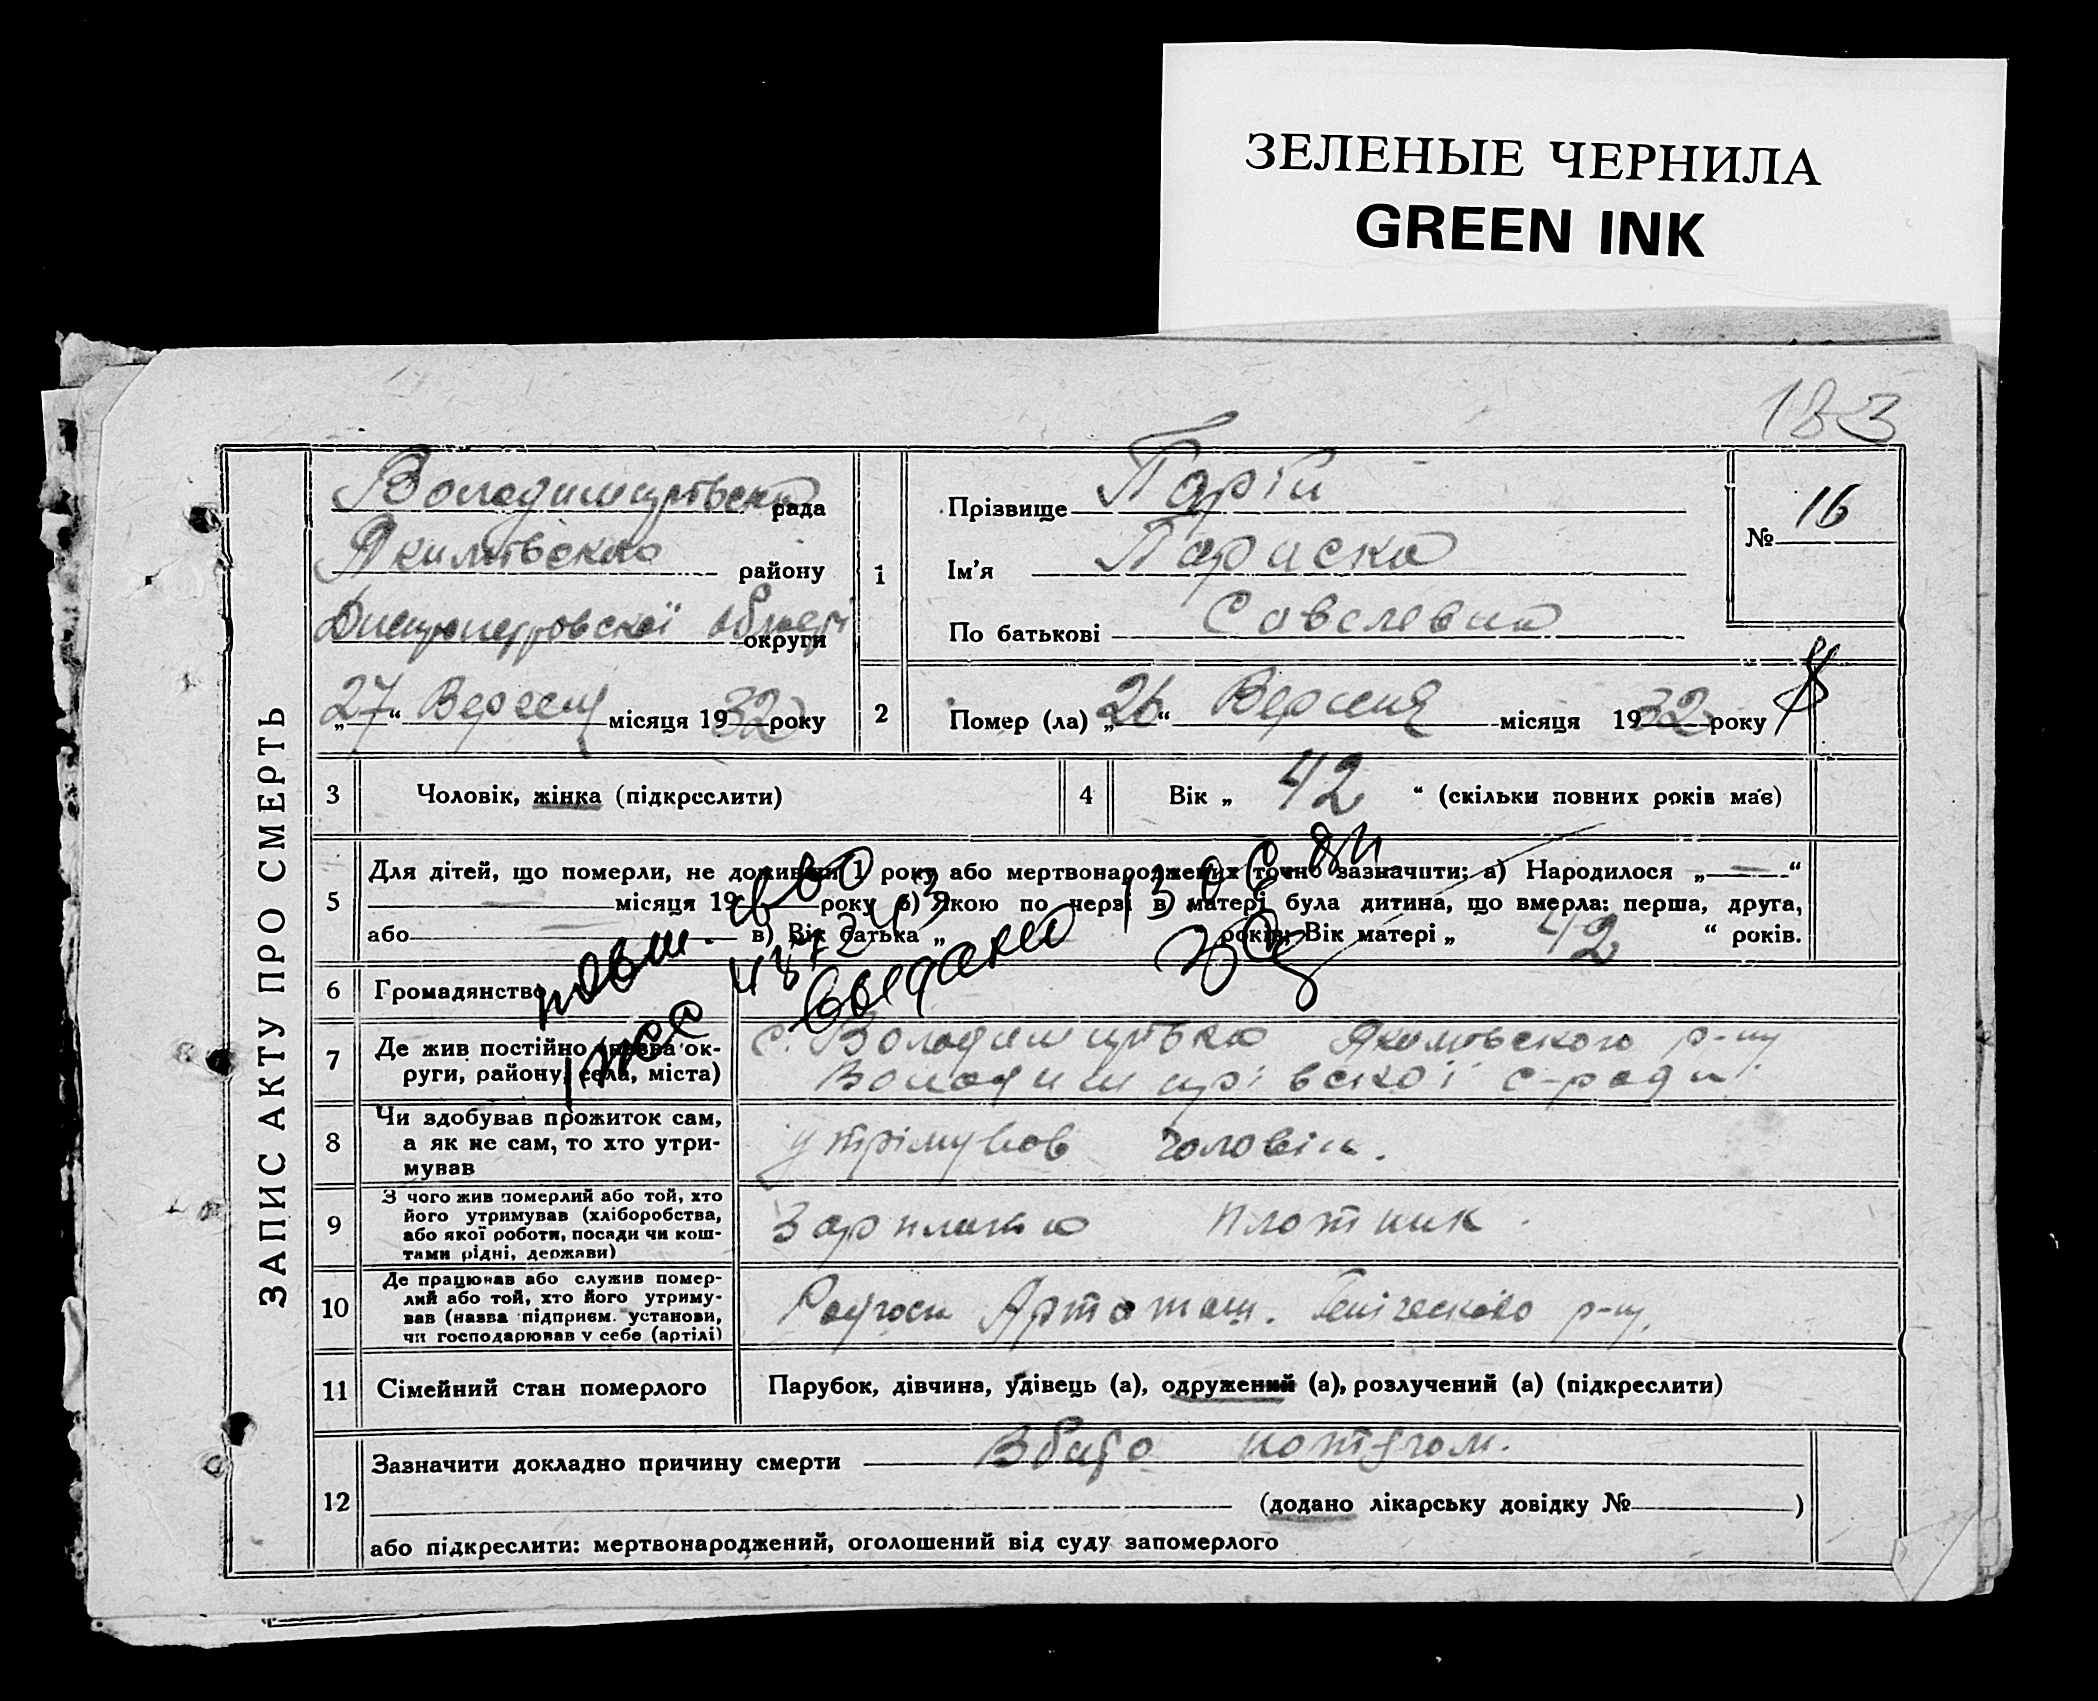 ЗЕЛЕНЫЕ ЧЕРНИЛА
GREEN INK
183
ЗАПИС АКТУ ПРО СМЕРТЬ
рада
району
округи
„27“ Вересня місяця 1932 року
1
Прізвище Парій
Ім'я Параска
По батькові Савелевна
№ 16
2
Помер (ла) „26“ Вересня місяця 1932 року
3 Чоловік, жінка (підкреслити)
4 Вік „ 42 “ (скільки повних років має)
5 Для дітей, що померли, не доживши 1 року або мертвонароджених точно зазначити: а) Народилося „ — “
місяця 19 року б) Якою по черзі в матері була дитина, що вмерла: перша, друга,
або в) Вік батька „ років. Вік матері „ 42 “ років.
повт. св во
выдано
6 Громадянство
7 Де жив постійно (назва округи, району, села, міста)
с. р-ну
с-ради
8 Чи здобував прожиток сам,
а як не сам, то хто утри-
мував
утрімував чоловік.
9 З чого жив померлий або той, хто
його утримував (хліборобства,
або якої роботи, посади чи кош-
тами рідні, держави)
Зарплатою плотник.
10 Де працював або служив помер-
лий або той, хто його утриму-
вав (назва підприєм. установи,
чи господарював у себе (артілі)
Радгосп р-ну.
11 Сімейний стан померлого
Парубок, дівчина, удівець (а), одружений (а), розлучений (а) (підкреслити)
12 Зазначити докладно причину смерти Вбито потягом.
(додано лікарську довідку № )
або підкреслити: мертвонароджений, оголошений від суду запомерлого